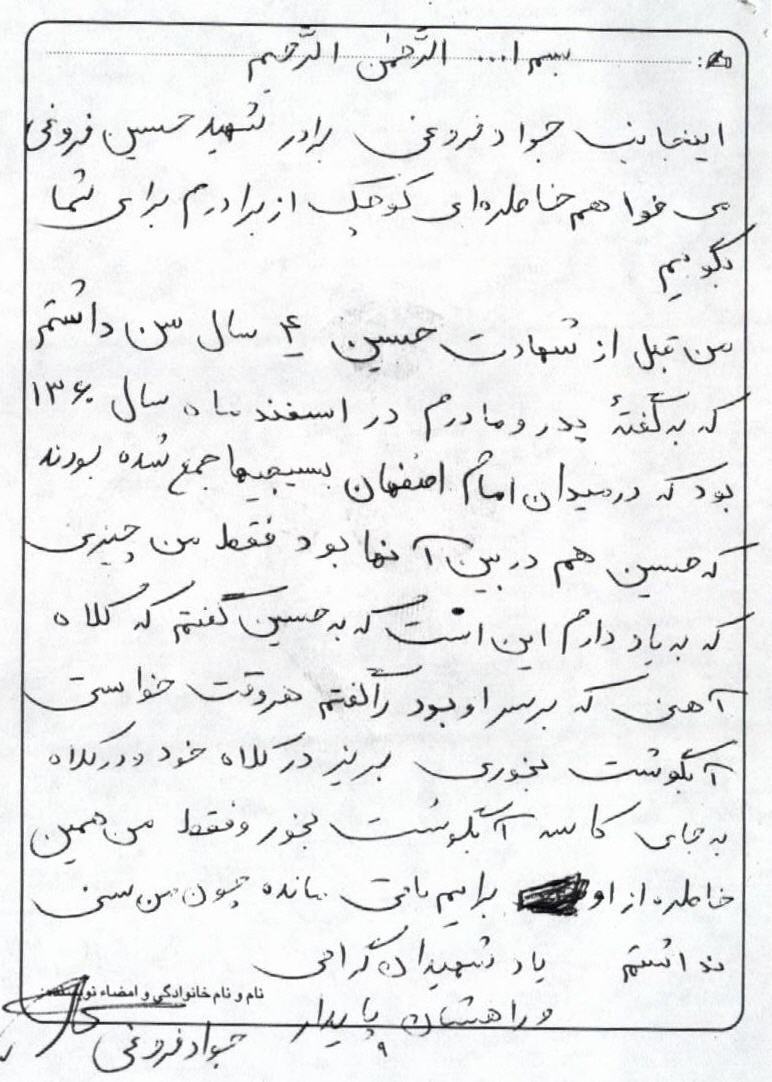 بسم ا... الرَّحمٰن الرَّحیم
اینجانب جواد فروغی برادر شهید حسین فروغی
می خواهم خاطره‌ای کوچک از برادرم برای شما
بگویم
من قبل از شهادت حسین ۴ سال سن داشتم
که به گفتهٔ پدر و مادرم در اسفند ماه سال ۱۳۶۰
بود که در میدان امام اصفهان بسیجیها جمع شده بودند
که حسین هم در بین آنها بود فقط من چیزی
که به یاد دارم این است که به حسین گفتم که کلاه
آهنی که برسر او بود را گفتم هر وقت خواستی
آبگوشت بخوری بریز در کلاه خود و در کلاه
به جای کاسه آبگوشت بخور و فقط من همین
خاطره از او برایم باقی مانده چون من سنی
نداشتم یاد شهیدان گرامی
و راهشان پایدار
نام و نام خانوادگی و امضاء نویسنده:
جواد فروغی
۹